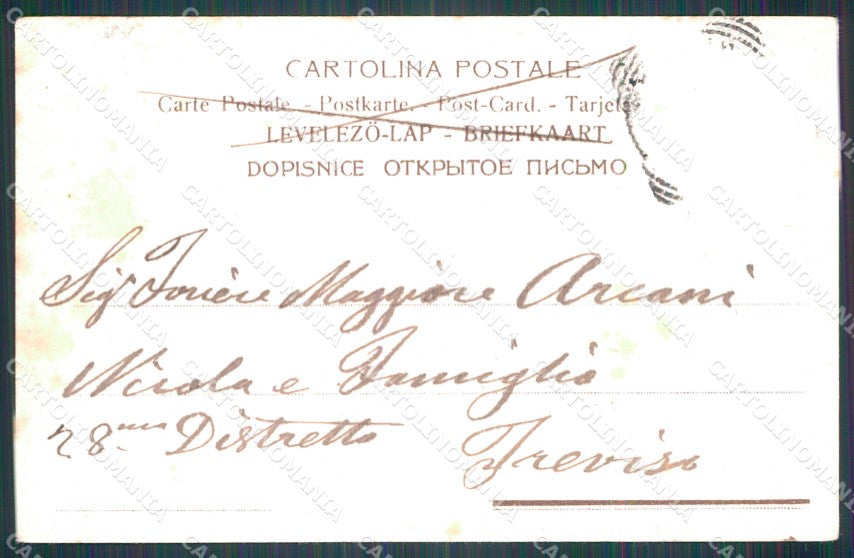 CARTOLINA POSTALE
Carte Postale. - Postkarte. - Post-Card. - Tarjeta
LEVELEZÖ-LAP - BRIEFKAART
DOPISNICE ОТКРЫТОЕ ПИСЬМО
Sigr Foriere Maggiore Arcani
Nicola e Famiglia
28mo Distretto
Treviso
CARTOLINOMANIA